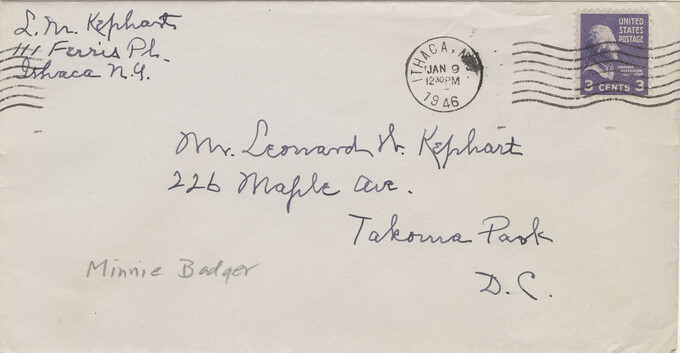 L. M. Kephart
111 Ferris Pl.
Ithaca N.Y.
ITHACA, N.Y.
JAN 9
12 30 PM
1946
UNITED
STATES
POSTAGE
3 CENTS 3
Mr. Leonard W. Kephart
226 Maple Ave.
Takoma Park
D.C.
Minnie Badger